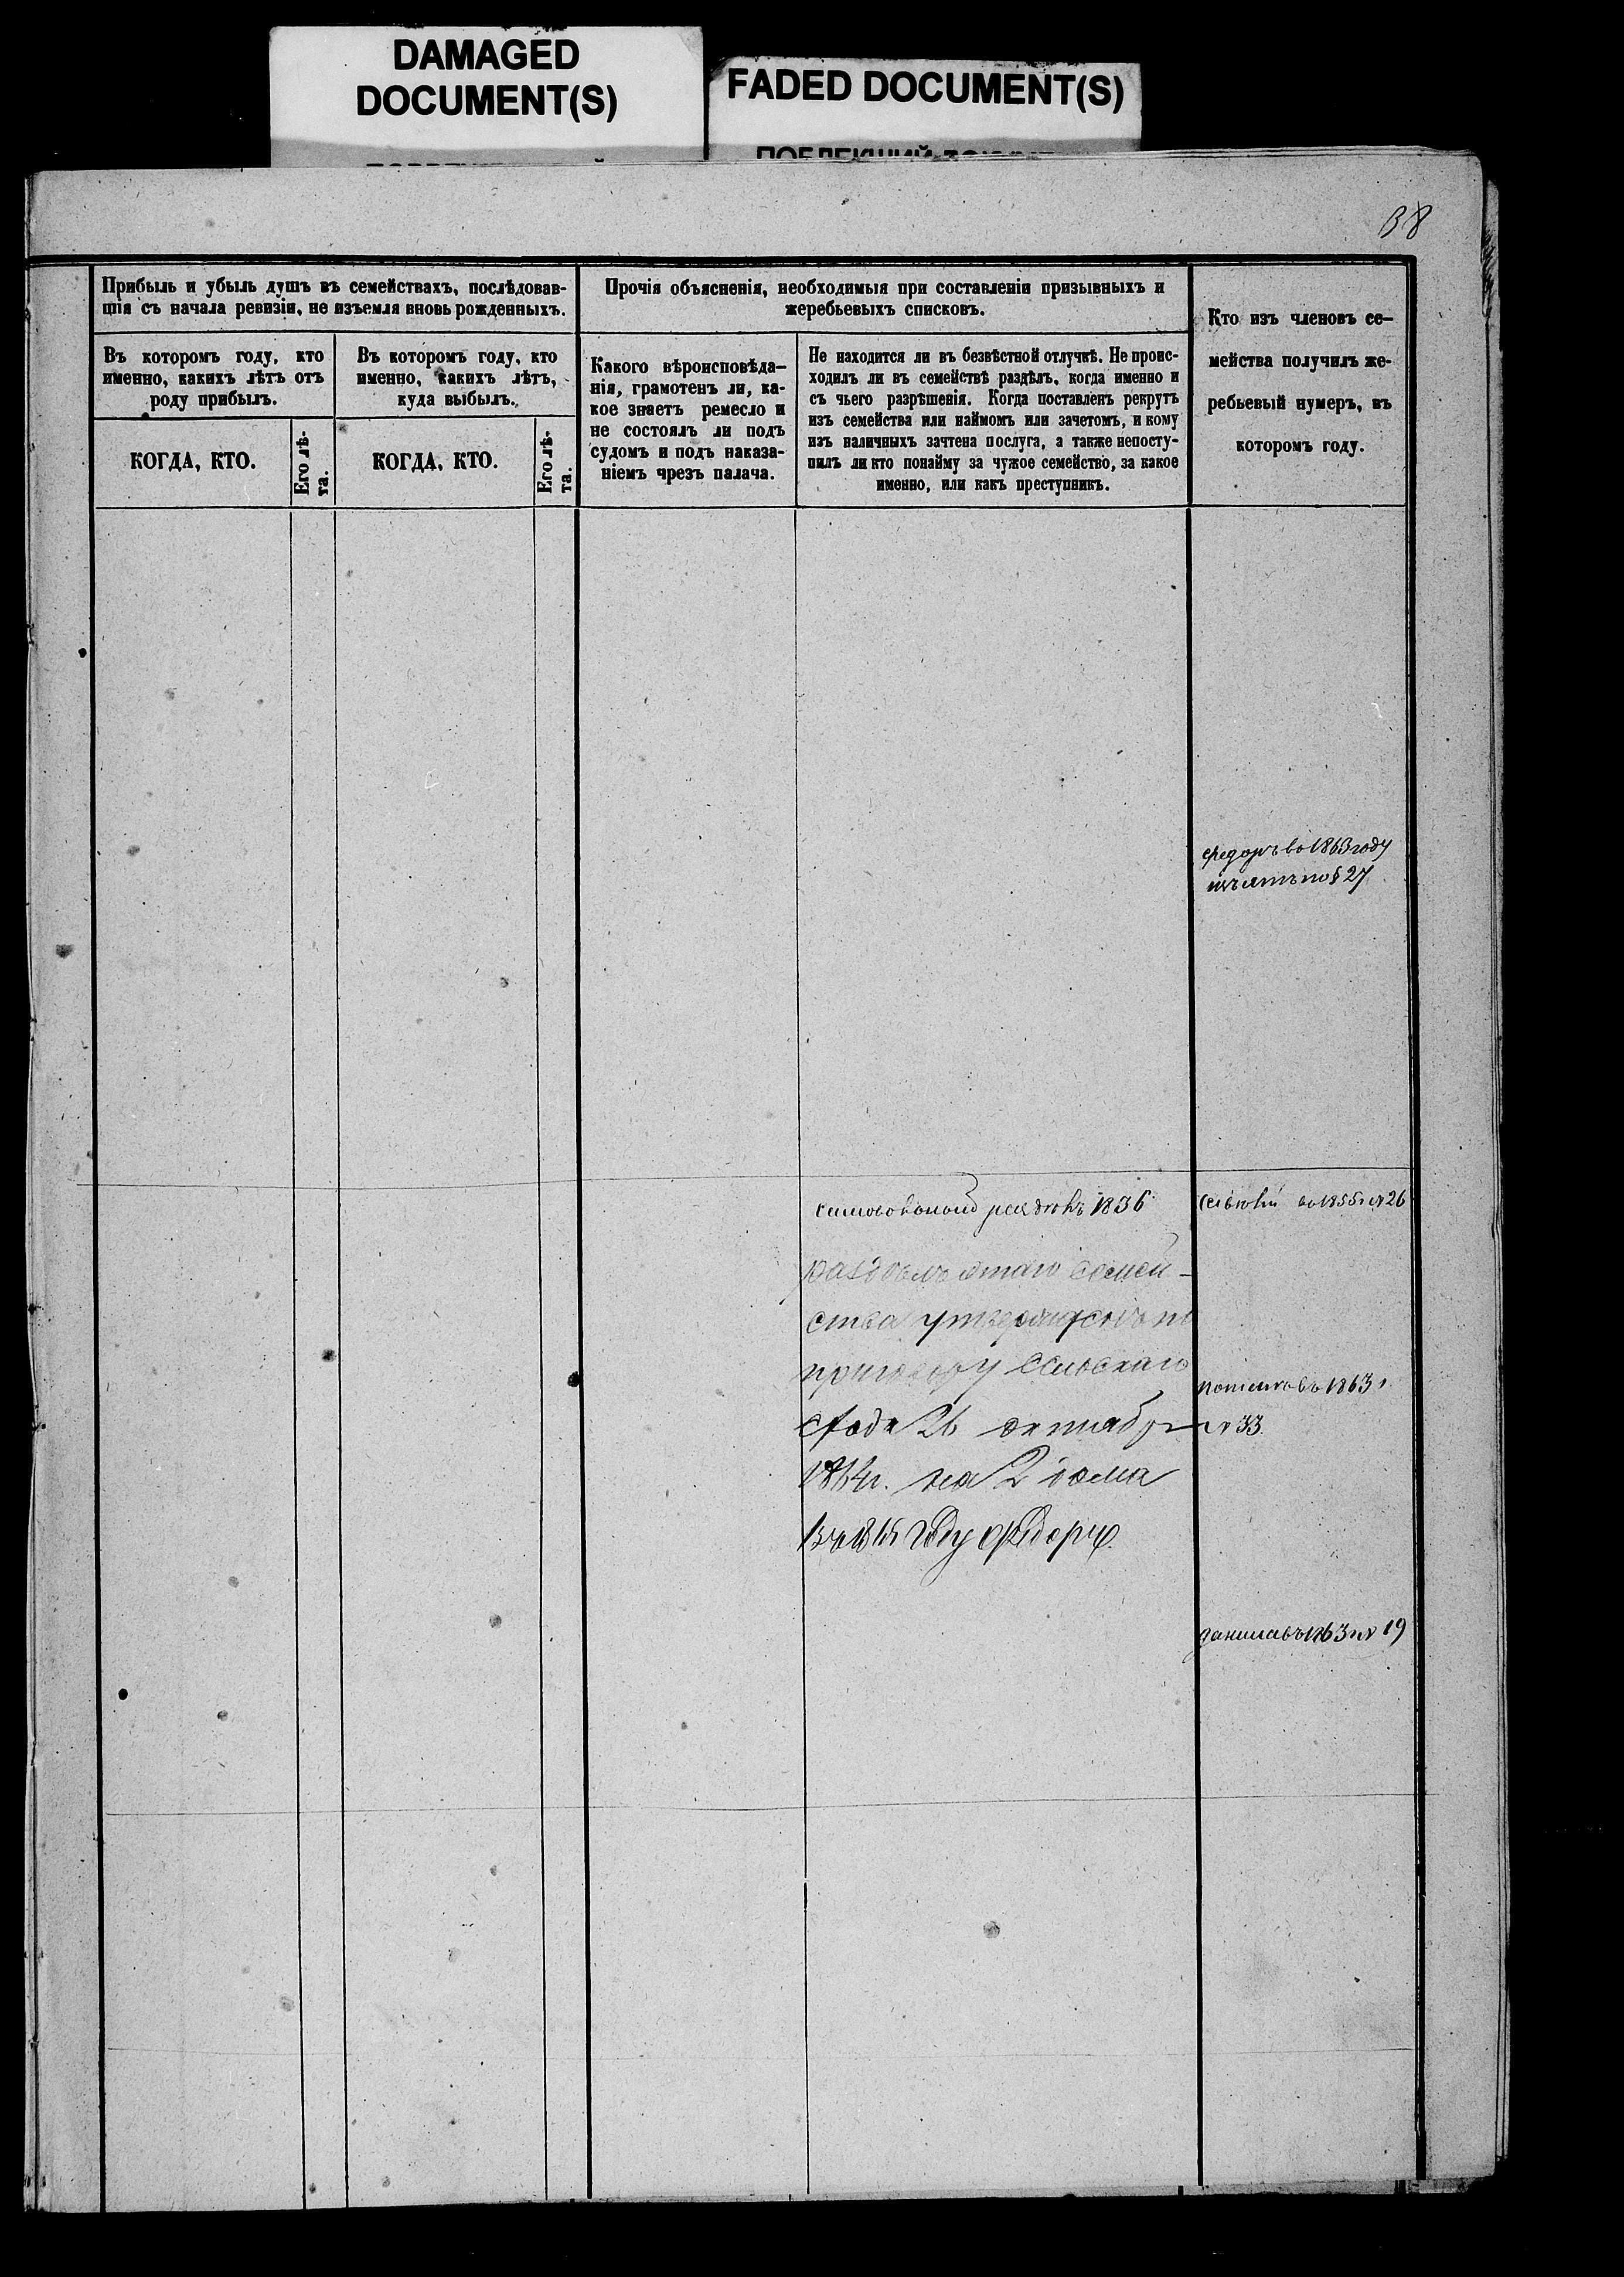 DAMAGED
DOCUMENT(S)
FADED DOCUMENT(S)
38
Прибыль и убыль душъ въ семействахъ, послѣдовав-
шія съ начала ревизіи, не изъемля вновь рожденныхъ.
Въ которомъ году, кто
именно, какихъ лѣтъ отъ
роду прибылъ.
Въ которомъ году, кто
именно, какихъ лѣтъ,
куда выбылъ.
КОГДА, КТО.
Его лѣ-
та.
КОГДА, КТО.
Его лѣ-
та.
Прочія объясненія, необходимыя при составленіи призывныхъ и
жеребьевыхъ списковъ.
Какого вѣроисповѣда-
нія, грамотенъ ли, ка-
кое знаетъ ремесло и
не состоялъ ли подъ
судомъ и подъ наказа-
ніемъ чрезъ палача.
Не находится ли въ безвѣстной отлучкѣ. Не проис-
ходилъ ли въ семействѣ раздѣлъ, когда именно и
съ чьего разрѣшенія. Когда поставленъ рекрутъ
изъ семейства или наймомъ или зачетомъ, и кому
изъ наличныхъ зачтена послуга, а также непосту-
пилъ ли кто понайму за чужое семейство, за какое
именно, или какъ преступникъ.
Кто изъ членовъ се-
мейства получилъ же-
ребьевый нумеръ, въ
которомъ году.
федоръ во 1863 году
изъятъ по § 27
1836
во 1855 г № 26
раздѣлъ этаго Семей-
ства утвержденъ по
приговору Сельскаго
схода 26 октября
1864г. на 2 дома
году
въ 1863 г
№ 33.
данила въ 1863 г № 19